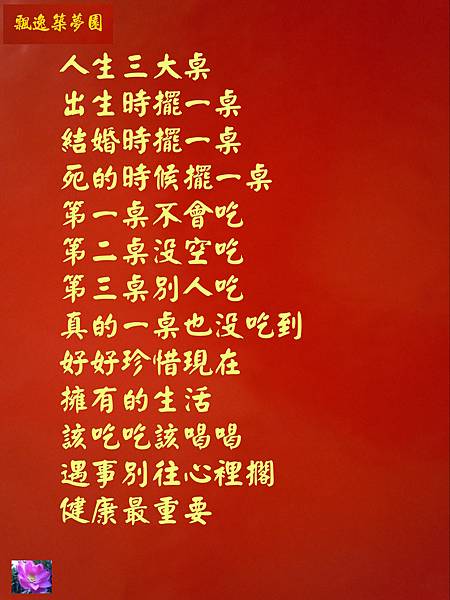 飄逸築夢園
人生三大桌
出生時擺一桌
結婚時擺一桌
死的時候擺一桌
第一桌不會吃
第二桌没空吃
第三桌別人吃
真的一桌也没吃到
好好珍惜現在
擁有的生活
該吃吃該喝喝
遇事別往心裡擱
健康最重要